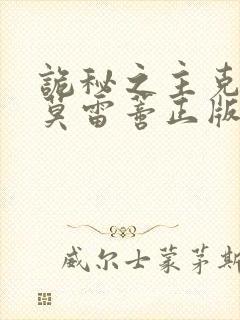 詭秘之主克
莫雷蒂正版
威尔士蒙茅斯